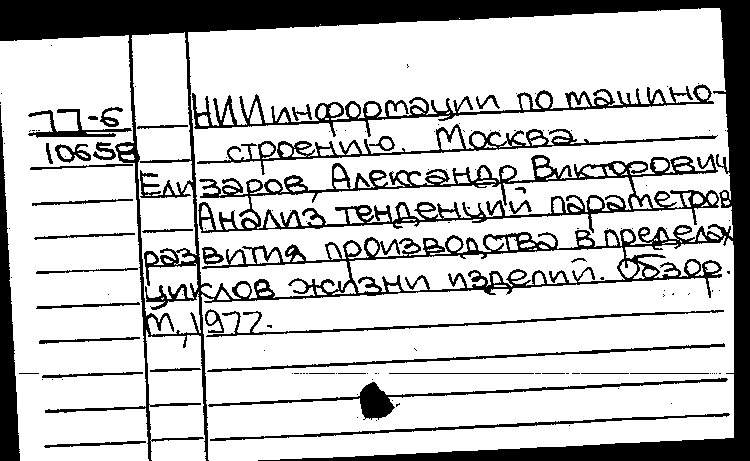 77-6
10658
НИИинформации по машино-
строению. Москва.
Елизаров, Александр Викторович
Анализ тенденций параметров
развития производства в пределах
циклов жизни изделий. Обзор.
М., 1977.